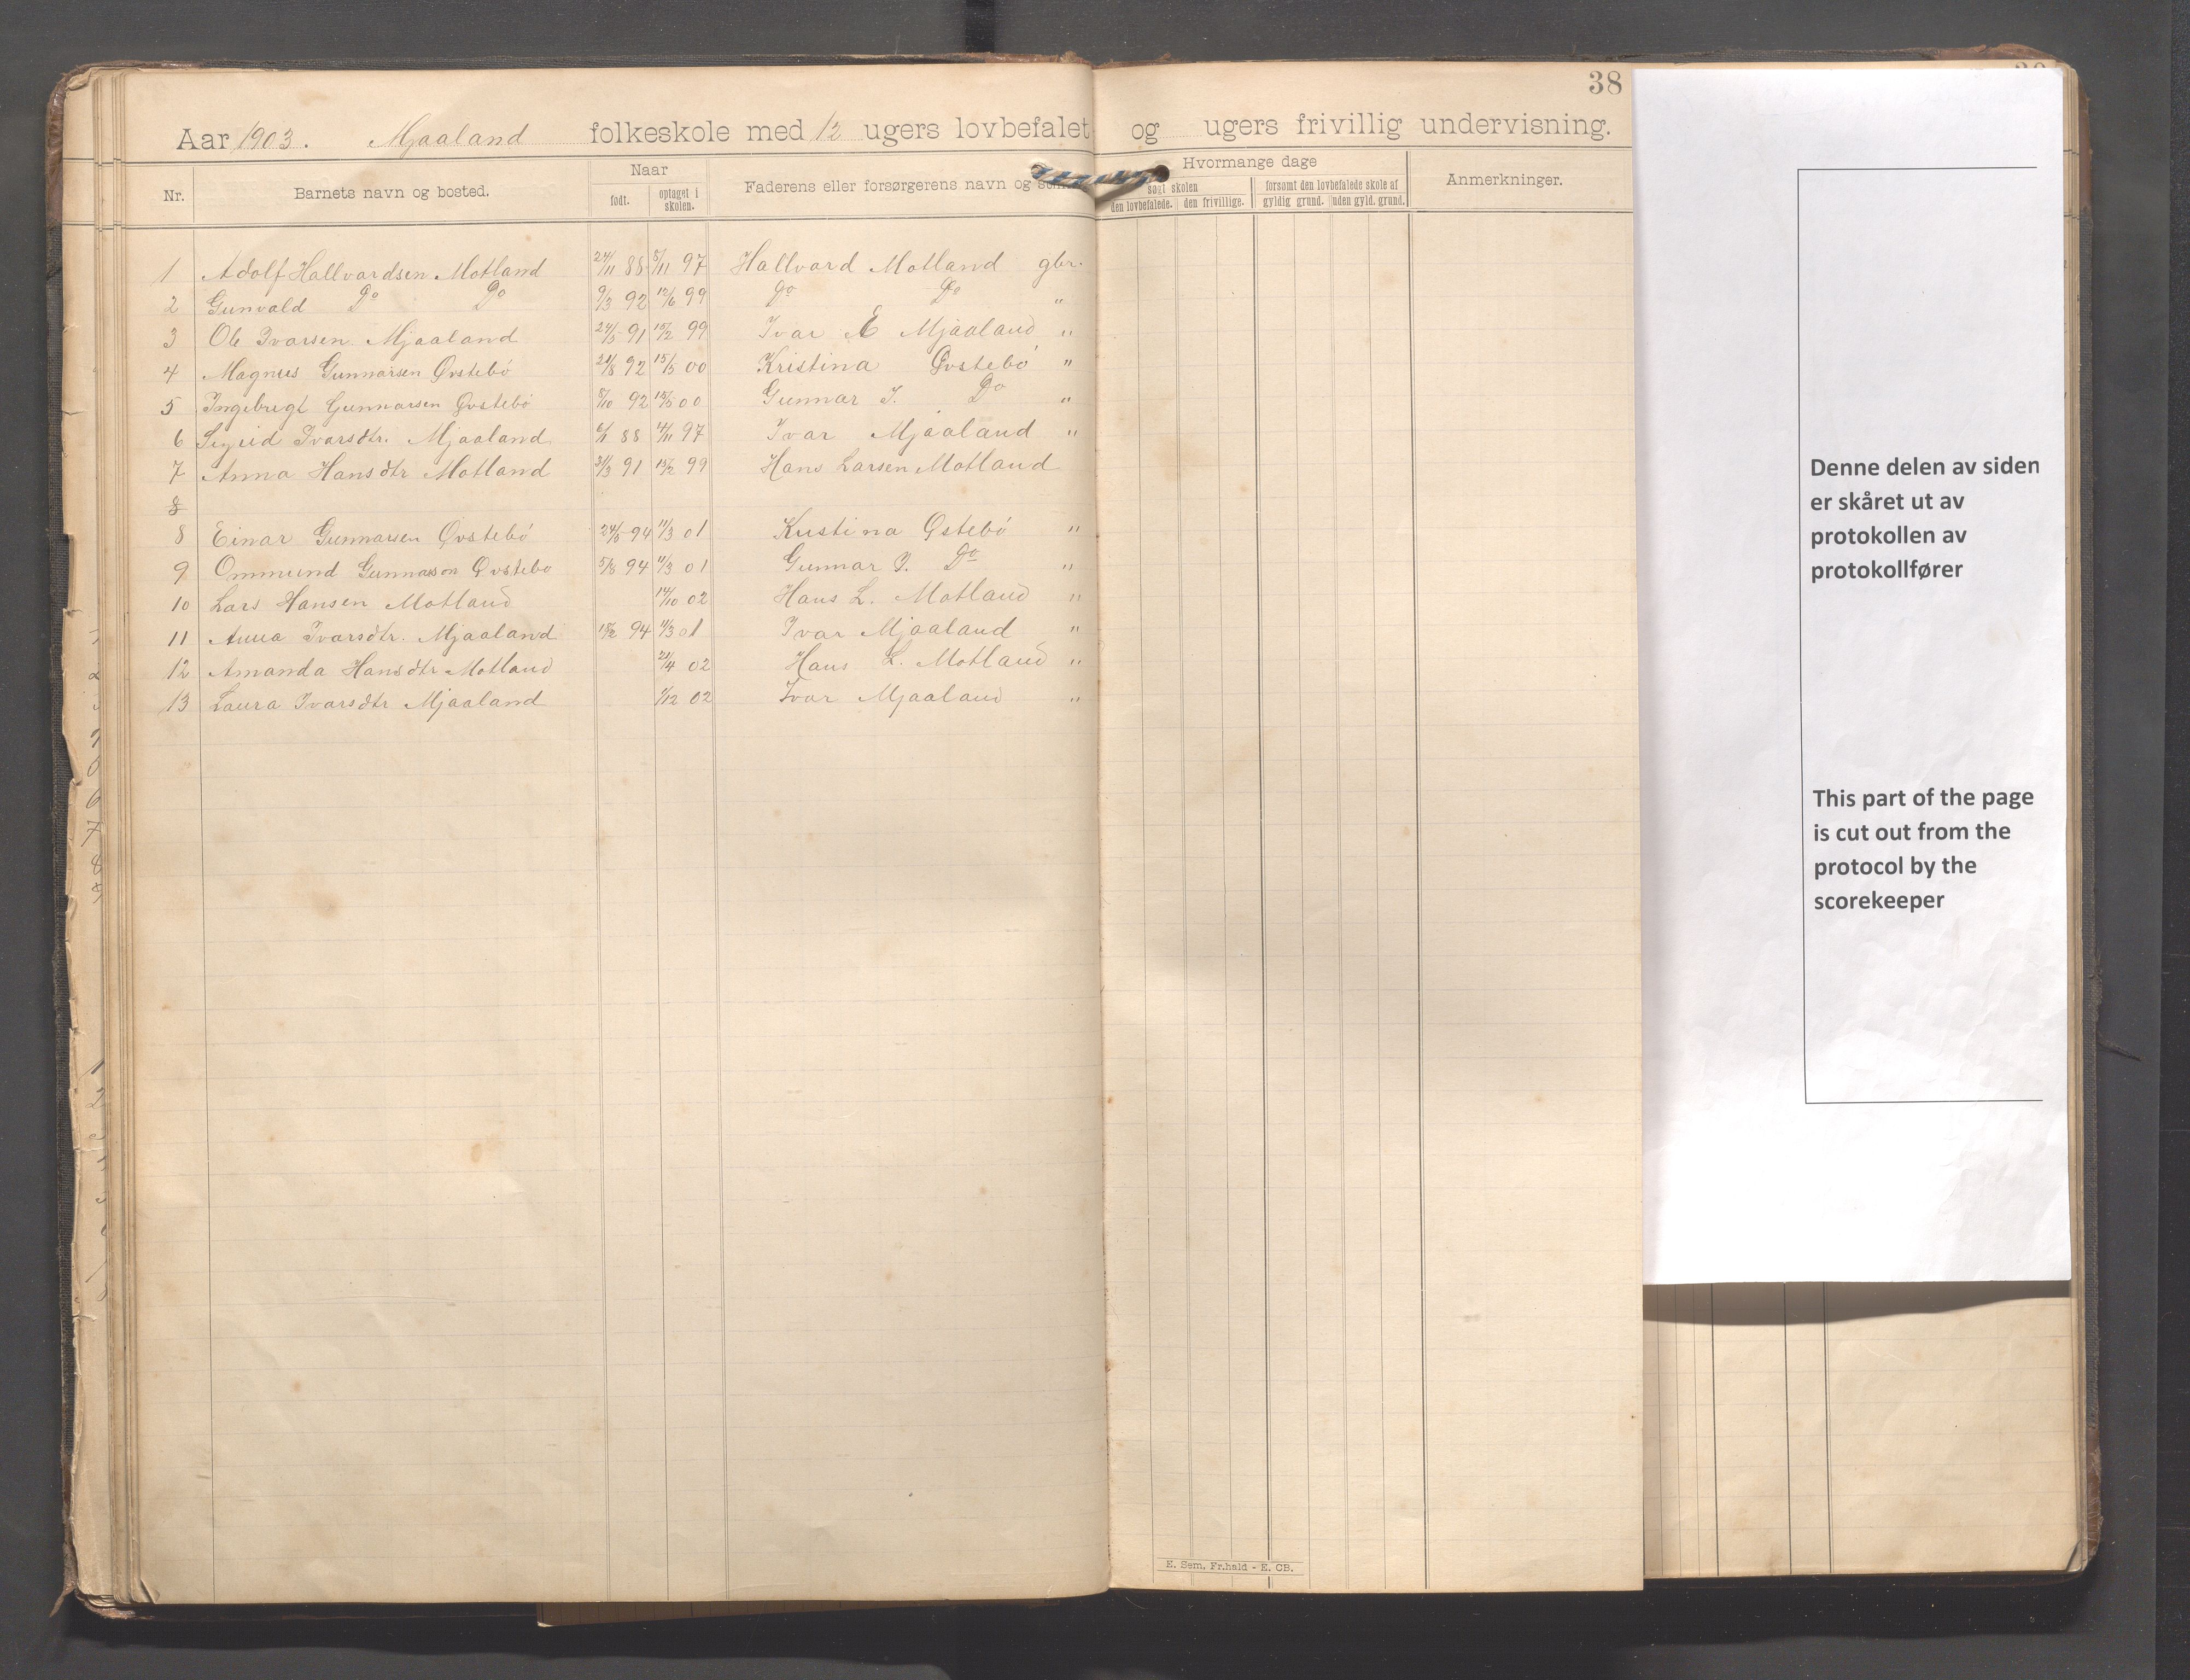 38
Aar 1903. Mjaaland folkeskole med 12 ugers lovbefalet og ugers frivillig undervisning.
Nr. Barnets navn og bosted. Naar født. optaget i skolen. Faderens eller forsørgerens navn og Hvormange dage søgt skolen den lovbefalede. den frivillige. forsømt den lovbefalede skole af gyldig grund. uden gyld. grund. Anmerkninger.
1 Adolf Hallvardsen Motland 24/11 88 5/11 97 Hallvard Motland gbr.
2 Gunvald Do Do 9/3 92 12/6 99 Do Do "
3 Ole Ivarsen Mjaaland 24/5 91 15/2 99 Ivar E Mjaaland "
4 Magnus Gunnarsen Øvstebö 92 15/5 00 Kristina Øvstebö "
5 Ingebregt Gunnarsen Øvstebö 8/10 92 15/5 00 Gunnar I. Do "
6 Sigrid Ivarsdtr. Mjaaland 88 4/11 97 Ivar Mjaaland "
7 Anna Hansdtr Motland 31/3 91 15/2 99 Hans Larsen Motland
8
8 Einar Gunnarsen Øvstebö 24/5 94 11/3 01 Kristina Østebö "
9 Ommund Gunnarson Øvstebo 5/8 94 11/3 01 Gunnar I. Do "
10 Lars Hansen Motland 14/10 02 Hans L. Motland "
11 Anna Ivarsdtr. Mjaaland 94 11/3 01 Ivar Mjaaland "
12 Amanda Hansdtr Motland 21/4 02 Hans L. Motland "
13 Laura Ivarsdtr Mjaaland 1/12 02 Ivar Mjaaland "
E. Sem, Fr.hald - E. CB.
Denne delen av siden
er skåret ut av
protokollen av
protokollfører
This part of the page
is cut out from the
protocol by the
scorekeeper